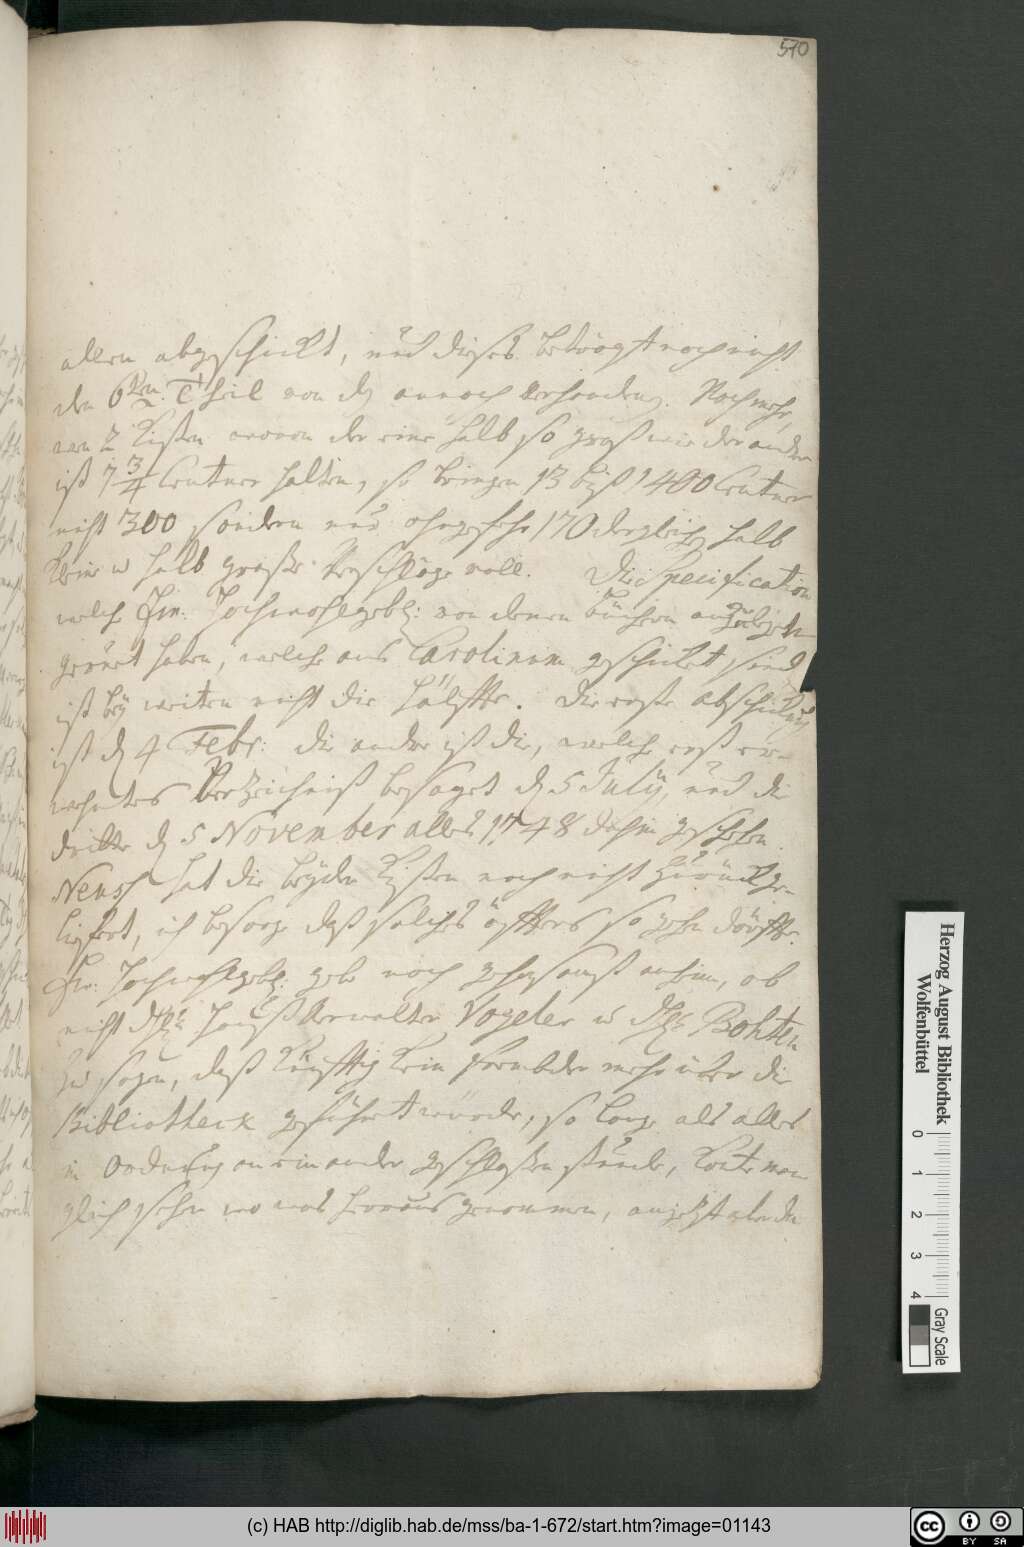 570
allem abgeschickt, und dieses beträgt noch nicht
den 6ten Theil von dem annoch verhandenen. Nachmehr,
wen 2 Kisten wovon der eine halb so groß wie der ander
ist 7 3/4 Centner halten, so bringen 13 biß 1400 Centner
nicht 300 sondern nur ohngefehr 170 dergleichen halb
kleine u halb große Verschläge voll. Die Specification
welche Ew: Hochwohlgebl: von denen Büchern
haben, welche ans Carolinum geschickt sind
ist bey weiten nicht die Hälffte. Die erste abschickung
ist d 4 Febr: die andre ist die, welche erst er-
wehntes Verzeichniß besaget d 5 July, und die
dritte d 5 November alles 1748 dahin geschehen.
Neusch hat die beyden Kisten noch nicht zurückge-
liefert, ich besorge daß solches öffters so gehen dörffte.
Ew: Hochwohlgebl: gebe noch gehorsamst anheim, ob
nicht Haußverwalter Vogeler u Bohten
zu sagen, daß künfftig kein Frembder mehr über die
Bibliotheck geführet würde, so lange als alles
in Ordnung an einander geschloßen stünde, konte man
gleich sehen wo was heraus genommen, anjetzt aber da
Herzog August Bibliothek
Wolfenbüttel
0 1 2 3 4
Gray Scale
(c) HAB http://diglib.hab.de/mss/ba-1-672/start.htm?image=01143
cc BY SA